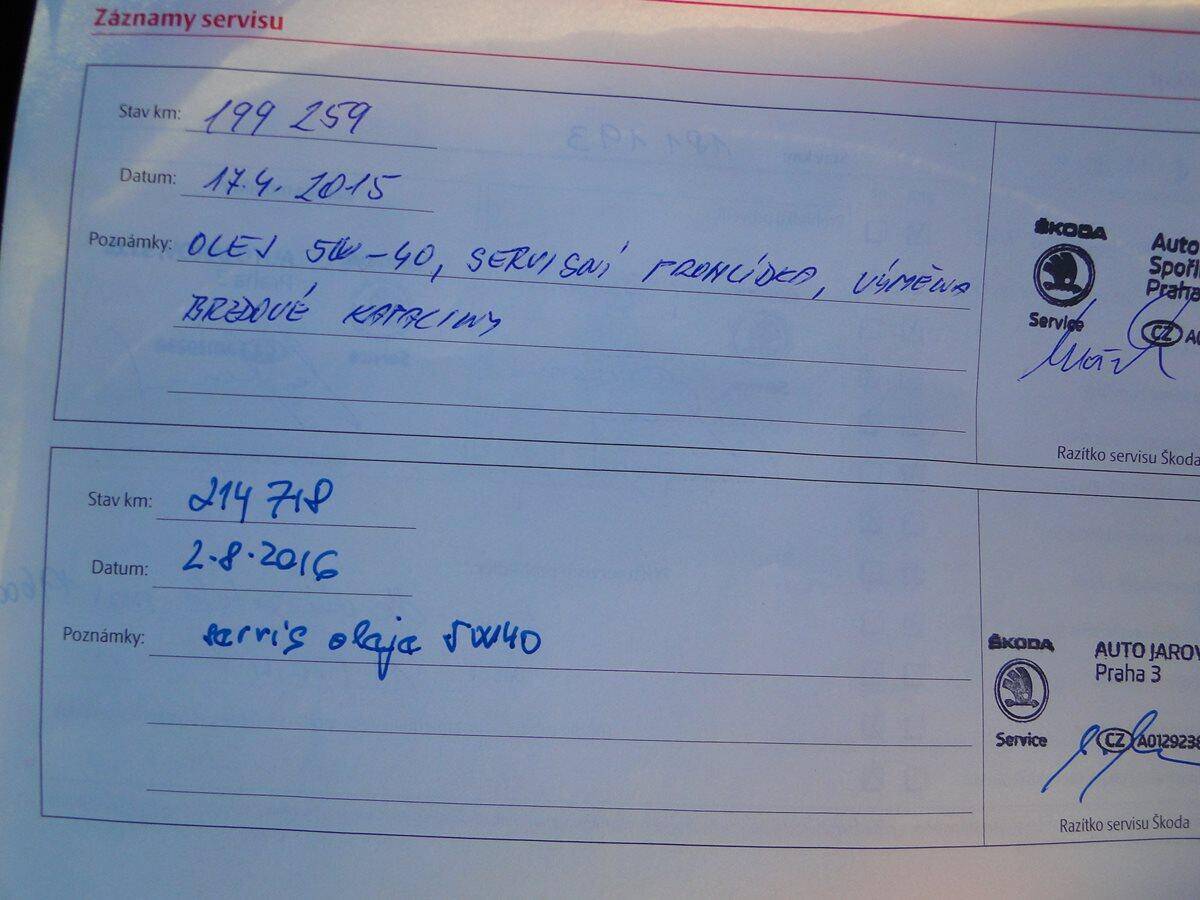 Záznamy servisu
Stav km: 199 259
Datum: 17.4. 2015
Poznámky: OLEJ 5W-40, SERVISNÍ PROHLÍDKA, VÝMĚNA
BRZDOVÉ KAPALINY
ŠKODA
Service
Auto
Spoři
Praha
CZ A0
Razítko servisu Škoda
Stav km: 214 718
Datum: 2.8.2016
Poznámky: servis oleje 5W40
ŠKODA
Service
AUTO JAROV
Praha 3
CZ A0129238
Razítko servisu Škoda